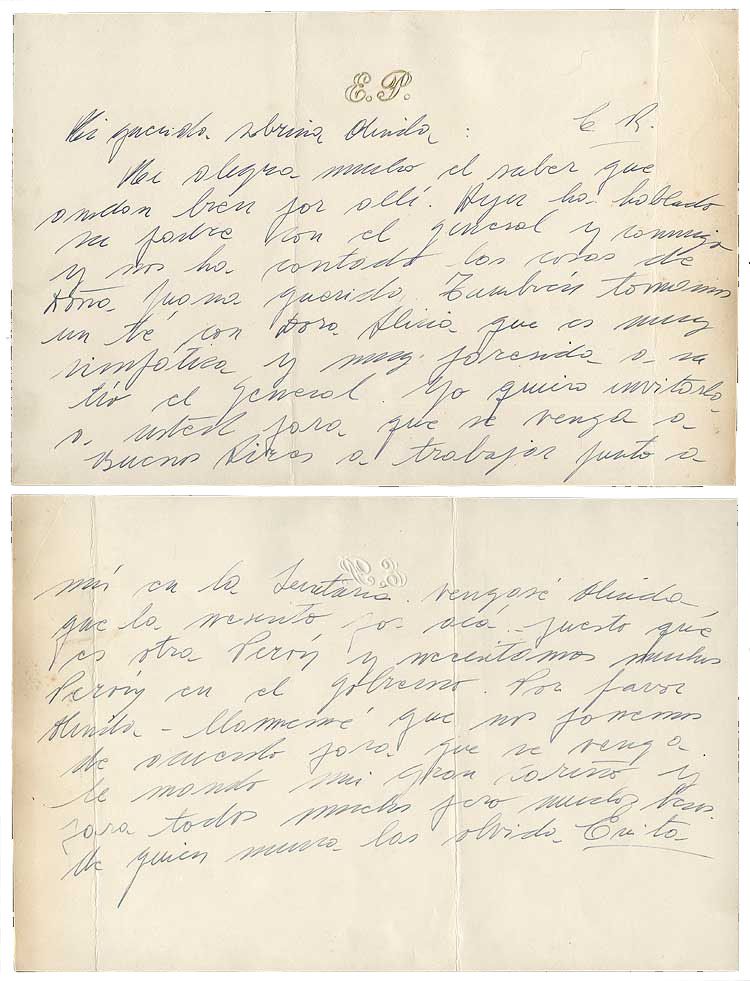 E.P.
C R.
Mi querida sobrina Olinda :
Me alegra mucho el saber que
andan bien por allí. Ayer ha hablado
su padre con el general y conmigo
y nos ha contado las cosas de
Doña Juana querida. También tomamos
un té con Dora Alicia que es muy
simpática y muy parecida a su
tío el general. Yo quiero invitarla
a usted para que se venga a
Buenos Aires a trabajar junto a
mí en la Secretaria. vengasé Olinda
que la nesesito por acá. puesto qué
es otra Perón y necesitamos muchos
Perón en el gobierno. Por favor
Olinda - llamemé que nos ponemos
de acuerdo para que se venga.
le mando mi gran cariño y
para todos muchos pero muchoz besos.
de quien nunca las olvida Evita